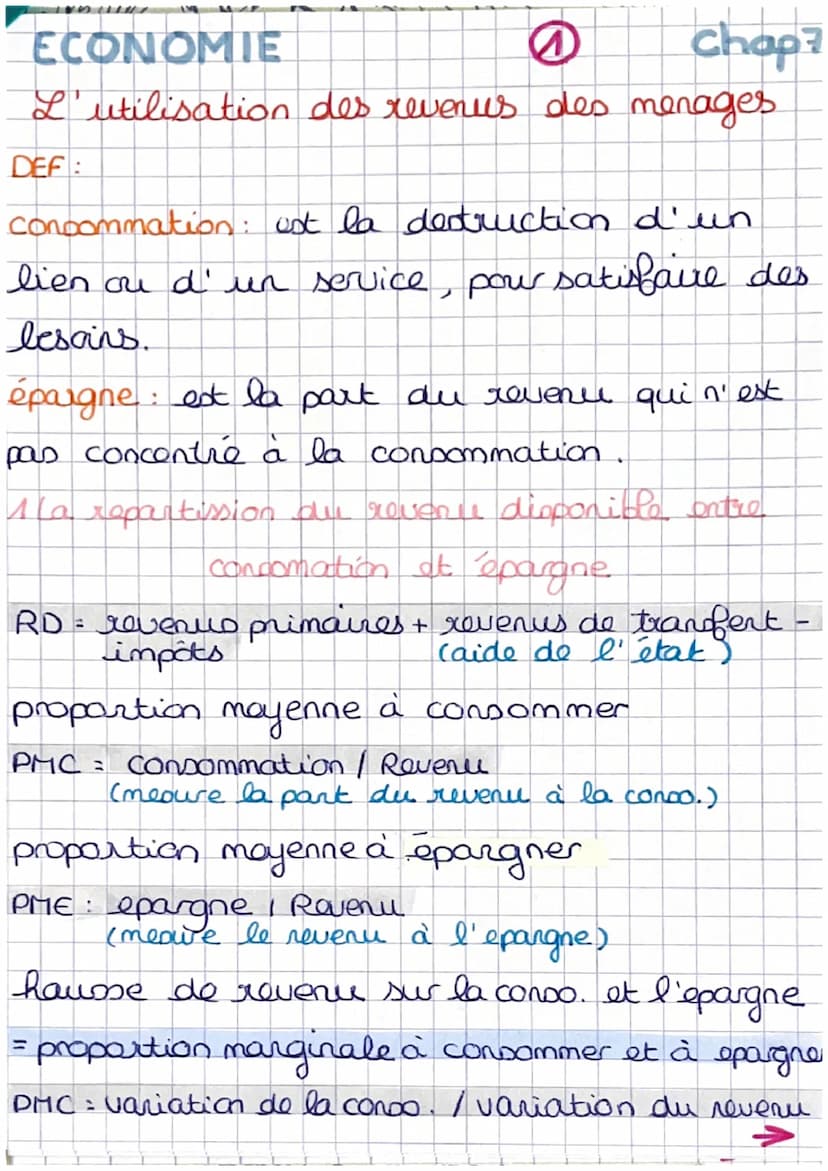 ECONOMIE ① Chap7
L'utilisation des revenus des menages
DEF :
consommation : est la destruction d'un
bien ou d'un service, pour satisfaire des
besoins.
épargne : est la part du revenu qui n'est
pas concentré à la consommation.
1 La repartission du revenu disponible entre
consomation et épargne
RD = revenus primaires + revenus de transfert -
impôts (aide de l'état)
proportion moyenne à consommer
PMC = consommation / Revenu
(mesure la part du revenu à la conso.)
proportion moyenne à épargner
PME : epargne / Revenu
(mesure le revenu à l'epargne)
hausse de revenu sur la conso. et l'epargne
= proportion marginale à consommer et à epargne
PMC = variation de la conso. / variation du revenu
→